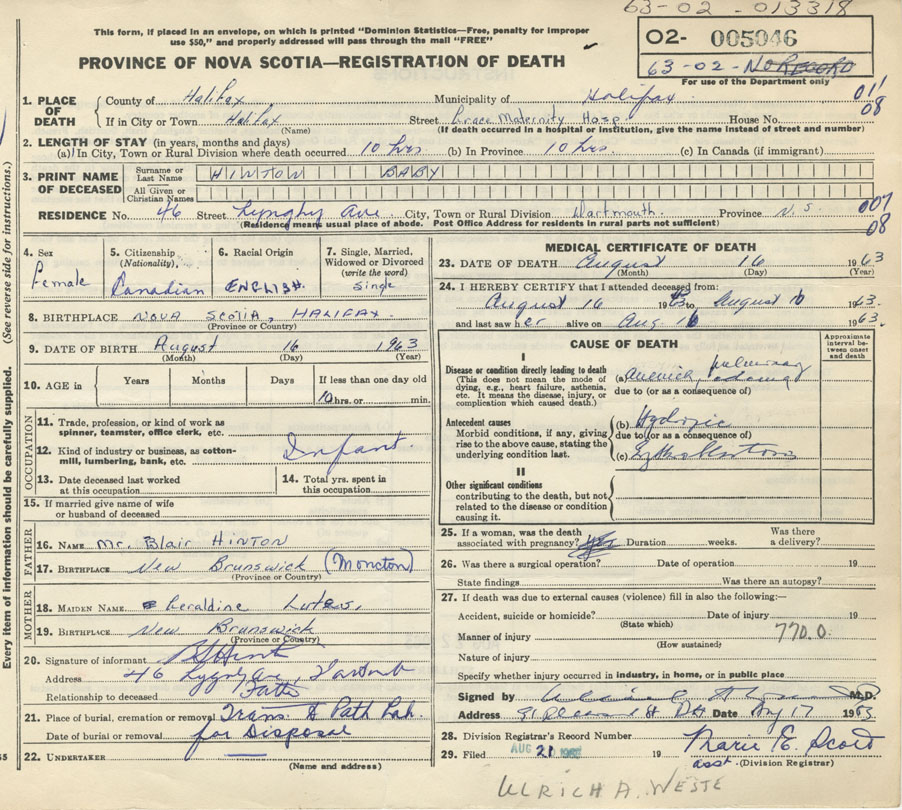 63-02-013318
This form, if placed in an envelope, on which is printed "Dominion Statistics—Free, penalty for improper
use $50," and properly addressed will pass through the mail "FREE"
02- 005046
PROVINCE OF NOVA SCOTIA—REGISTRATION OF DEATH
63-02- NO RECORD
For use of the Department only
1. PLACE OF DEATH
County of Halifax Municipality of Halifax 011
If in City or Town Halifax Street Grace Maternity Hosp. House No. 08
(Name) (If death occurred in a hospital or institution, give the name instead of street and number)
2. LENGTH OF STAY (in years, months and days)
(a) In City, Town or Rural Division where death occurred 10 hrs. (b) In Province 10 hrs. (c) In Canada (if immigrant)
3. PRINT NAME OF DECEASED
Surname or Last Name HINTON BABY
All Given or Christian Names
RESIDENCE No. 46 Street Ave City, Town or Rural Division Dartmouth Province N.S. 007
08
(Residence means usual place of abode. Post Office Address for residents in rural parts not sufficient)
4. Sex
Female
5. Citizenship (Nationality)
Canadian
6. Racial Origin
ENGLISH
7. Single, Married, Widowed or Divorced (write the word)
Single
8. BIRTHPLACE NOVA SCOTIA, HALIFAX.
(Province or Country)
9. DATE OF BIRTH August 16 1963
(Month) (Day) (Year)
10. AGE in Years Months Days If less than one day old
10 hrs. or min.
OCCUPATION
11. Trade, profession, or kind of work as spinner, teamster, office clerk, etc.
12. Kind of industry or business, as cotton-mill, lumbering, bank, etc. Infant.
13. Date deceased last worked at this occupation
14. Total yrs. spent in this occupation
15. If married give name of wife or husband of deceased
FATHER
16. NAME Mr. Blair HINTON
17. BIRTHPLACE New Brunswick (Moncton)
(Province or Country)
MOTHER
18. MAIDEN NAME Geraldine Lutes.
19. BIRTHPLACE New Brunswick
(Province or Country)
20. Signature of informant
Address 46
Relationship to deceased Father
21. Place of burial, cremation or removal Trans. to Path Lab.
Date of burial or removal for Disposal
22. UNDERTAKER
(Name and address)
MEDICAL CERTIFICATE OF DEATH
23. DATE OF DEATH August 16 1963
(Month) (Day) (Year)
24. I HEREBY CERTIFY that I attended deceased from:
August 16 1963 to August 16 1963.
and last saw her alive on Aug. 16 1963.
CAUSE OF DEATH
Approximate interval between onset and death
I
Disease or condition directly leading to death
(This does not mean the mode of dying, e.g., heart failure, asthenia, etc. It means the disease, injury, or complication which caused death.)
(a) pulmonary
due to (or as a consequence of)
Antecedent causes
Morbid conditions, if any, giving rise to the above cause, stating the underlying condition last.
(b)
due to (or as a consequence of)
(c)
II
Other significant conditions
contributing to the death, but not related to the disease or condition causing it.
25. If a woman, was the death associated with pregnancy? Duration weeks. Was there a delivery?
26. Was there a surgical operation? Date of operation 19
State findings Was there an autopsy?
27. If death was due to external causes (violence) fill in also the following:—
Accident, suicide or homicide? Date of injury 19
(State which)
Manner of injury 770.0
(How sustained)
Nature of injury
Specify whether injury occurred in industry, in home, or in public place
Signed by M.D.
Address Date Aug 17 1963
28. Division Registrar's Record Number
29. Filed AUG 21 19 Marie E. Scott
asst. (Division Registrar)
ULRICH A. WESTE
Every item of information should be carefully supplied. (See reverse side for instructions.)